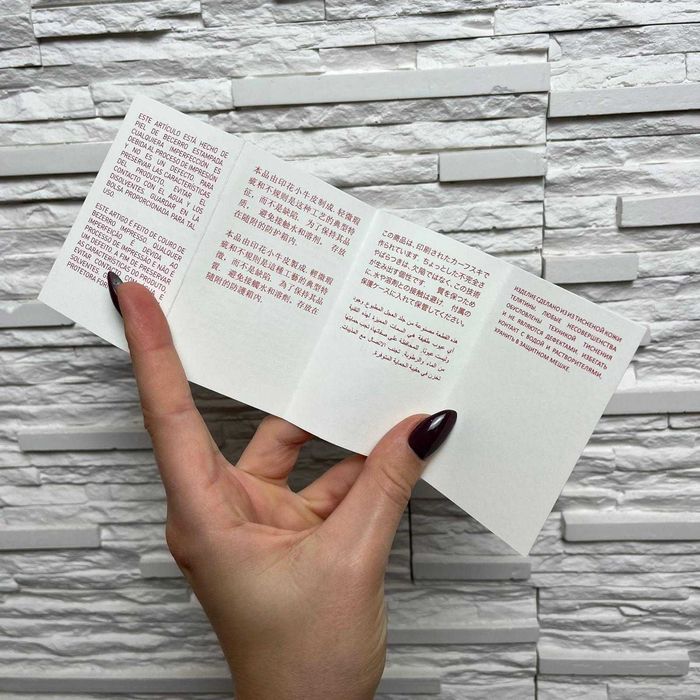 ESTE ARTÍCULO ESTÁ HECHO DE
PIEL DE BECERRO ESTAMPADA.
CUALQUIERA IMPERFECCIÓN ES
DEBIDA AL PROCESO DE IMPRESIÓN
Y NO ES UN DEFECTO. PARA
PRESERVAR LAS CARACTERÍSTICAS
DEL PRODUCTO, EVITAR EL
CONTACTO CON EL AGUA Y LOS
DISOLVENTES. GUARDAR EN LA
BOLSA PROPORCIONADA PARA TAL
USO.
ESTE ARTIGO É FEITO DE COURO DE
BEZERRO IMPRESSO. QUALQUER
IMPERFEIÇÃO É DEVIDA AO
PROCESSO DE IMPRESSÃO E NÃO É
UM DEFEITO. A FIM DE PRESERVAR
AS CARACTERÍSTICAS DO PRODUTO,
EVITAR O CONTATO COM
SOLVENTES E
PROTETORA FOR
本品由印花小牛皮制成。轻微瑕
疵和不规则是这种工艺的典型特
征，而不是缺陷。为了保持其品
质，避免接触水和溶剂。存放
在随附的防护箱内。
本品由印花小牛皮製成。輕微瑕
疵和不規則是這種工藝的典型特
徵，而不是缺陷。為了保持其品
質，避免接觸水和溶劑。存放在
隨附的防護箱內。
この商品は、印刷されたカーフスキで
作られています。ちょっとした不完全さ
やばらつきは、欠陥ではなく、この技術
が生み出す個性です。 質を保つため
に、水や溶剤との接触は避け、付属の
保護ケースに入れて保管してください。
هذه القطعة مصنوعة من جلد العجل المطبوع وجود
أي عيوب طفيفة هي السمات المميزة لهذه التقنية
وليست عيوبا. للمحافظة على سماتها، تجنب حمايتها
من الماء والرطوبة. تجنب الاتصال مع المذيبات.
تخزن في حقيبة الحماية المتوفرة.
ИЗДЕЛИЕ СДЕЛАНО ИЗ ИЗ ТИСНЕНОЙ КОЖИ
ТЕЛЯТИНЫ. ЛЮБЫЕ НЕСОВЕРШЕНСТВА
ОБУСЛОВЛЕНЫ ТЕХНИКОЙ ТИСНЕНИЯ
И НЕ ЯВЛЯЮТСЯ ДЕФЕКТАМИ. ИЗБЕГАТЬ
КОНТАКТ С ВОДОЙ И РАСТВОРИТЕЛЯМИ,
ХРАНИТЬ В ЗАЩИТНОМ МЕШКЕ.